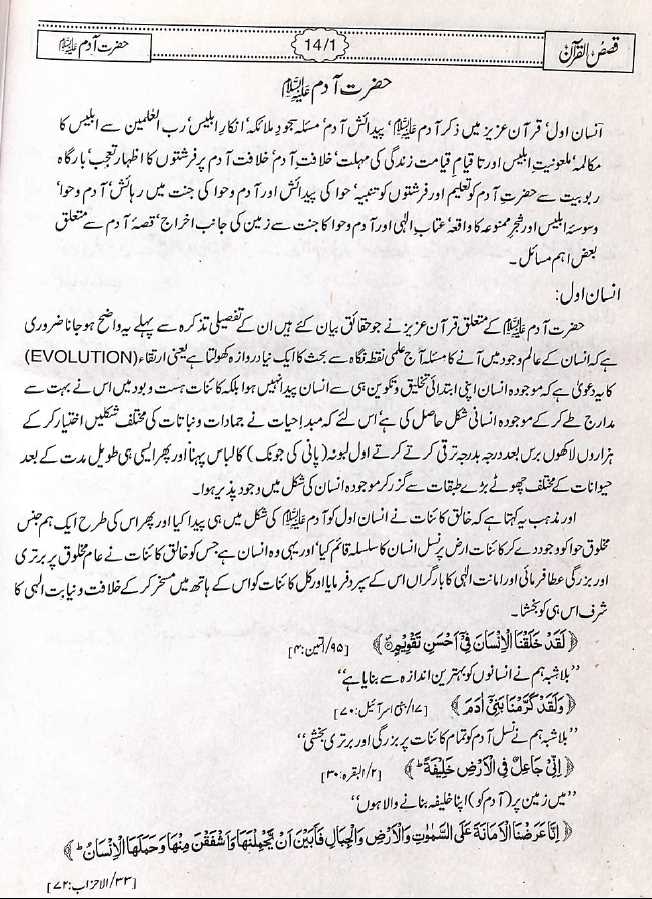 قصص القرآن
14/1
حضرت آدم علیہ السلام
حضرت آدم علیہ السلام
انسان اول، قرآن عزیز میں ذکر آدم علیہ السلام، پیدائش آدم، مسئلہ سجود ملائکہ، انکار ابلیس، رب العٰلمین سے ابلیس کا
مکالمہ، ملعونیت ابلیس اور تا قیام قیامت زندگی کی مہلت، خلافت آدم، خلافت آدم پر فرشتوں کا اظہار تعجب، بارگاہ
ربوبیت سے حضرت آدم کو تعلیم اور فرشتوں کو تنبیہ، حوا کی پیدائش اور آدم و حوا کی جنت میں رہائش، آدم و حوا،
وسوسۂ ابلیس اور شجر ممنوعہ کا واقعہ، عتاب الٰہی اور آدم و حوا کا جنت سے زمین کی جانب اخراج، قصۂ آدم سے متعلق
بعض اہم مسائل۔
انسان اول:
حضرت آدم علیہ السلام کے متعلق قرآن عزیز نے جو حقائق بیان کئے ہیں ان کے تفصیلی تذکرہ سے پہلے یہ واضح ہو جانا ضروری
ہے کہ انسان کے عالم وجود میں آنے کا مسئلہ آج علمی نقطہ نگاہ سے بحث کا ایک نیا دروازہ کھولتا ہے یعنی ارتقاء (EVOLUTION)
کا یہ دعویٰ ہے کہ موجودہ انسان اپنی ابتدائی تخلیق و تکوین ہی سے انسان پیدا نہیں ہوا بلکہ کائنات ہست و بود میں اس نے بہت سے
مدارج طے کر کے موجودہ انسانی شکل حاصل کی ہے، اس لئے کہ مبدا حیات نے جمادات و نباتات کی مختلف شکلیں اختیار کر کے
ہزاروں لاکھوں برس بعد درجہ بدرجہ ترقی کرتے کرتے اول لبونہ (پانی کی جونک) کا لباس پہنا اور پھر ایسی ہی طویل مدت کے بعد
حیوانات کے مختلف چھوٹے بڑے طبقات سے گزر کر موجودہ انسان کی شکل میں وجود پذیر ہوا۔
اور مذہب یہ کہتا ہے کہ خالق کائنات نے انسان اول کو آدم علیہ السلام کی شکل میں ہی پیدا کیا اور پھر اس کی طرح ایک ہم جنس
مخلوق حوا کو وجود دے کر کائنات ارض پر نسل انسان کا سلسلہ قائم کیا، اور یہی وہ انسان ہے جس کو خالق کائنات نے عام مخلوق پر برتری
اور بزرگی عطا فرمائی اور امانت الٰہی کا بار گراں اس کے سپرد فرمایا اور کل کائنات کو اس کے ہاتھ میں مسخر کر کے خلافت و نیابت الٰہی کا
شرف اس ہی کو بخشا۔
﴿ لَقَدْ خَلَقْنَا الْاِنْسَانَ فِیْۤ اَحْسَنِ تَقْوِیْمٍ ﴾ [۹۵/التین:۴]
’’بلاشبہ ہم نے انسانوں کو بہترین اندازہ سے بنایا ہے‘‘
﴿ وَلَقَدْ كَرَّمْنَا بَنِیْۤ اٰدَمَ ﴾ [۱۷/بنی اسرآئیل:۷۰]
’’بلاشبہ ہم نے نسل آدم کو تمام کائنات پر بزرگی اور برتری بخشی‘‘
﴿ اِنِّیْ جَاعِلٌ فِی الْاَرْضِ خَلِیْفَةً ؕ ﴾ [۲/البقرہ:۳۰]
’’میں زمین پر (آدم کو) اپنا خلیفہ بنانے والا ہوں‘‘
﴿ اِنَّا عَرَضْنَا الْاَمَانَةَ عَلَی السَّمٰوٰتِ وَالْاَرْضِ وَالْجِبَالِ فَاَبَیْنَ اَنْ یَّحْمِلْنَهَا وَاَشْفَقْنَ مِنْهَا وَحَمَلَهَا الْاِنْسَانُ ؕ ﴾
[۳۳/الاحزاب:۷۲]